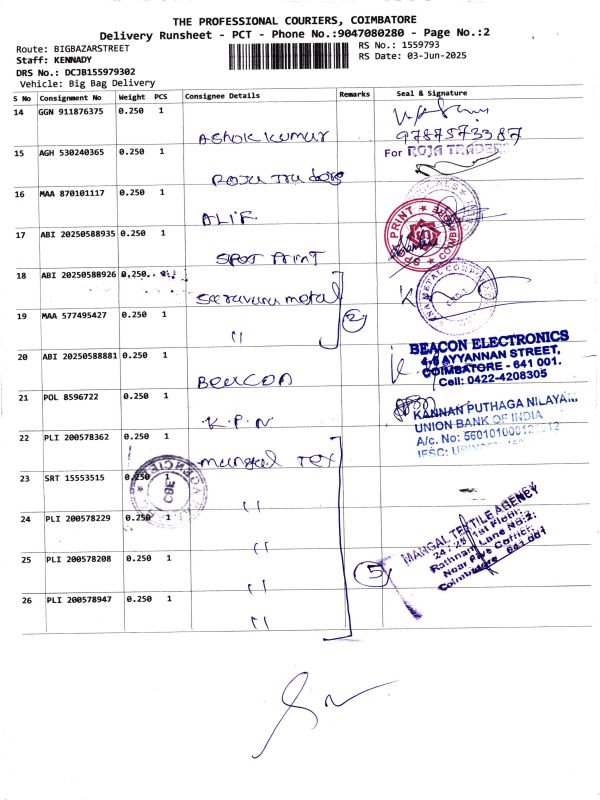 THE PROFESSIONAL COURIERS, COIMBATORE
Delivery Runsheet - PCT - Phone No.:9047080280 - Page No.:2
Route: BIGBAZARSTREET
Staff: KENNADY
DRS No.: DCJB155979302
Vehicle: Big Bag Delivery
RS No.: 1559793
RS Date: 03-Jun-2025
S No Consignment No Weight PCS Consignee Details Remarks Seal & Signature
14 GGN 911876375 0.250 1
Ashok kumar
9787573387
15 AGH 530240365 0.250 1
For ROJA TRADERS
Roja Traders
16 MAA 870101117 0.250 1
ALIF
17 ABI 20250588935 0.250 1
SPOT PRINT COIMBATORE
Spot Print
18 ABI 20250588926 0.250
Saravana metal
METAL CORPORATION
19 MAA 577495427 0.250 1
"
2
20 ABI 20250588881 0.250 1
Beacon
BEACON ELECTRONICS
4-5 AYYANNAN STREET,
COIMBATORE - 641 001.
Cell: 0422-4208305
21 POL 8596722 0.250 1
K.P.N
KANNAN PUTHAGA NILAYAM
UNION BANK OF INDIA
A/c. No:
IFSC:
22 PLI 200578362 0.250 1
Mangal Tex
23 SRT 15553515 0.250 1
"
24 PLI 200578229 0.250 1
"
25 PLI 200578208 0.250 1
"
26 PLI 200578947 0.250 1
"
5
MANGAL TEXTILE AGENCY
24, 25, 1st Floor,
Rathnam Lane No.2,
Near Five Corner,
Coimbatore 641 001